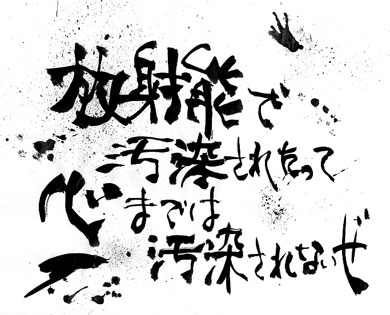 放射能で
汚染されたって
心までは
汚染されないぜ